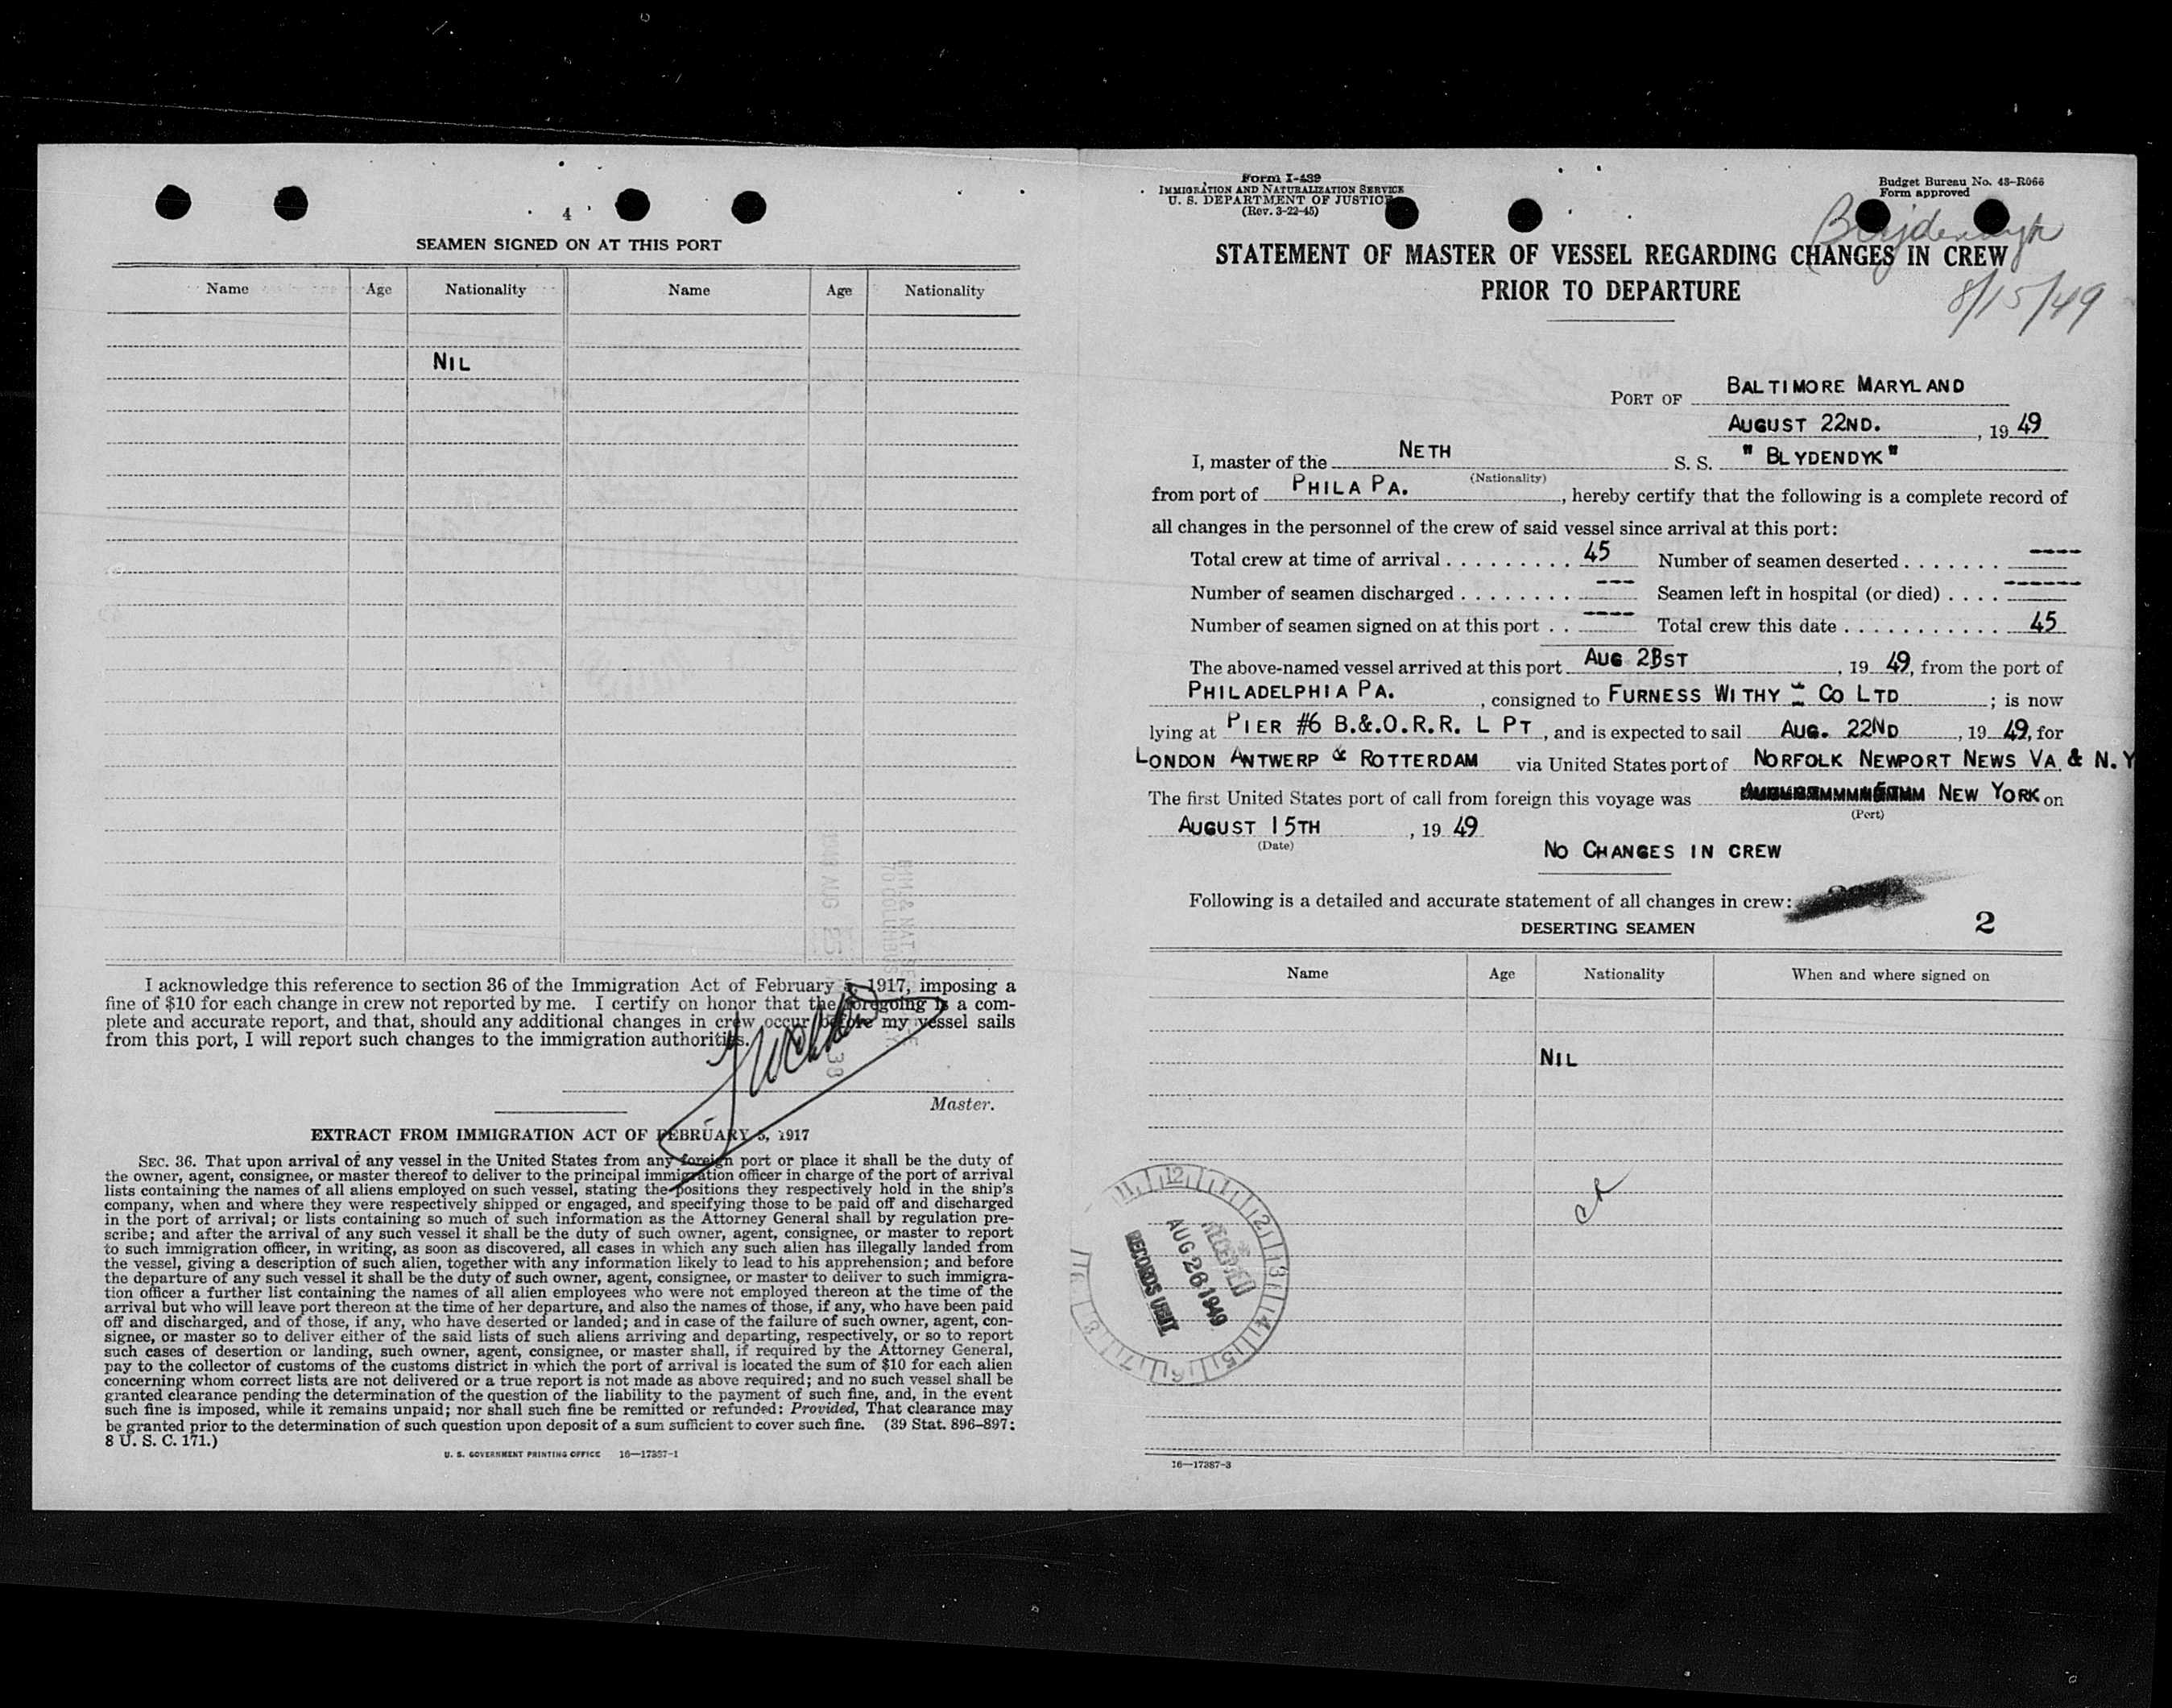 4
SEAMEN SIGNED ON AT THIS PORT
Name Age Nationality Name Age Nationality
NIL
I acknowledge this reference to section 36 of the Immigration Act of February 5, 1917, imposing a
fine of $10 for each change in crew not reported by me. I certify on honor that the foregoing is a com-
plete and accurate report, and that, should any additional changes in crew occur before my vessel sails
from this port, I will report such changes to the immigration authorities.
Master.
EXTRACT FROM IMMIGRATION ACT OF FEBRUARY 5, 1917
SEC. 36. That upon arrival of any vessel in the United States from any foreign port or place it shall be the duty of
the owner, agent, consignee, or master thereof to deliver to the principal immigration officer in charge of the port of arrival
lists containing the names of all aliens employed on such vessel, stating the positions they respectively hold in the ship's
company, when and where they were respectively shipped or engaged, and specifying those to be paid off and discharged
in the port of arrival; or lists containing so much of such information as the Attorney General shall by regulation pre-
scribe; and after the arrival of any such vessel it shall be the duty of such owner, agent, consignee, or master to report
to such immigration officer, in writing, as soon as discovered, all cases in which any such alien has illegally landed from
the vessel, giving a description of such alien, together with any information likely to lead to his apprehension; and before
the departure of any such vessel it shall be the duty of such owner, agent, consignee, or master to deliver to such immigra-
tion officer a further list containing the names of all alien employees who were not employed thereon at the time of the
arrival but who will leave port thereon at the time of her departure, and also the names of those, if any, who have been paid
off and discharged, and of those, if any, who have deserted or landed; and in case of the failure of such owner, agent, con-
signee, or master so to deliver either of the said lists of such aliens arriving and departing, respectively, or so to report
such cases of desertion or landing, such owner, agent, consignee, or master shall, if required by the Attorney General,
pay to the collector of customs of the customs district in which the port of arrival is located the sum of $10 for each alien
concerning whom correct lists are not delivered or a true report is not made as above required; and no such vessel shall be
granted clearance pending the determination of the question of the liability to the payment of such fine, and, in the event
such fine is imposed, while it remains unpaid; nor shall such fine be remitted or refunded: Provided, That clearance may
be granted prior to the determination of such question upon deposit of a sum sufficient to cover such fine. (39 Stat. 896–897;
8 U. S. C. 171.)
U. S. GOVERNMENT PRINTING OFFICE 16—17387-1
Form I-439
IMMIGRATION AND NATURALIZATION SERVICE
U. S. DEPARTMENT OF JUSTICE
(Rev. 3-22-45)
Budget Bureau No. 43-R066
Form approved
Blijdendyk
8/15/49
STATEMENT OF MASTER OF VESSEL REGARDING CHANGES IN CREW
PRIOR TO DEPARTURE
PORT OF BALTIMORE MARYLAND
AUGUST 22ND. , 19 49
I, master of the NETH S. S. " BLYDENDYK "
(Nationality)
from port of PHILA PA. , hereby certify that the following is a complete record of
all changes in the personnel of the crew of said vessel since arrival at this port:
Total crew at time of arrival . . . . . . . . . 45 Number of seamen deserted . . . . . . . ----
Number of seamen discharged . . . . . . . . --- Seamen left in hospital (or died) . . . . ------
Number of seamen signed on at this port . . ---- Total crew this date . . . . . . . . . . . 45
The above-named vessel arrived at this port AUG 21ST , 19 49, from the port of
PHILADELPHIA PA. , consigned to FURNESS WITHY & CO LTD ; is now
lying at PIER #6 B.&.O.R.R. L PT , and is expected to sail AUG. 22ND , 19 49, for
LONDON ANTWERP & ROTTERDAM via United States port of NORFOLK NEWPORT NEWS VA & N.Y
The first United States port of call from foreign this voyage was NEW YORK on
(Port)
AUGUST 15TH , 19 49
(Date)
NO CHANGES IN CREW
Following is a detailed and accurate statement of all changes in crew:
DESERTING SEAMEN 2
Name Age Nationality When and where signed on
NIL
RECEIVED
AUG 26 1949
RECORDS UNIT
16—17387-3